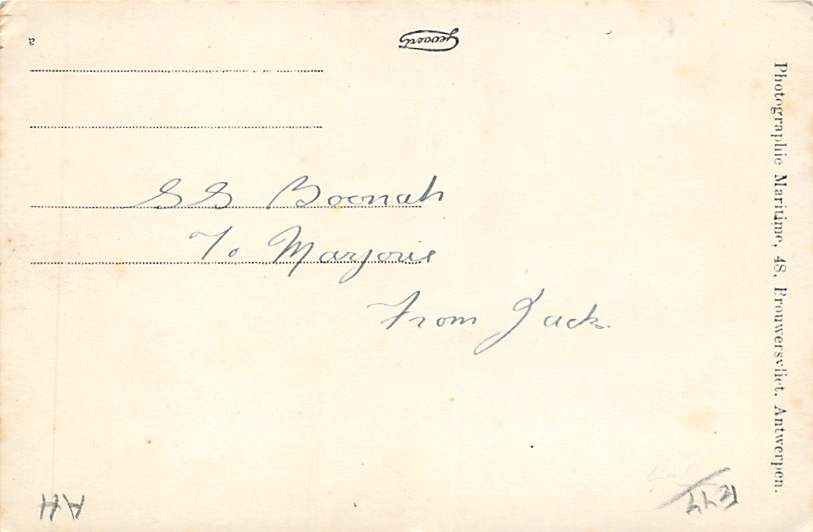 Gevaert
a
SS Boonah
To Marjorie
From Jack
Photographie Maritime, 48, Brouwersvliet. Antwerpen.
AH